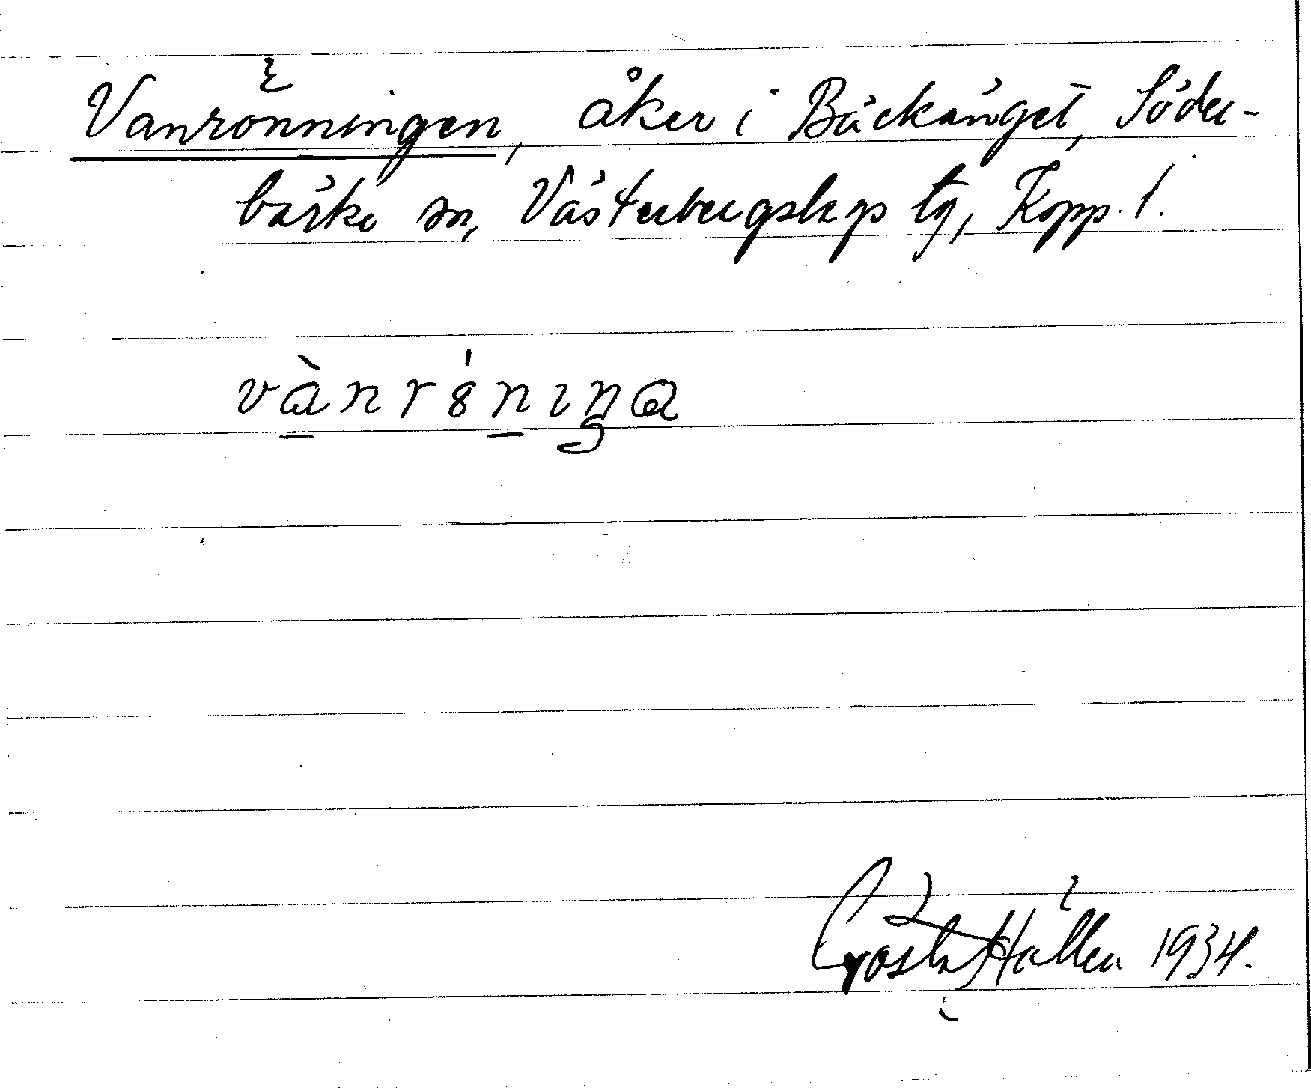 Vanrönningen, åker i Bäckänget, Söder-
bärke sn, Västerbergslags tg, Kopp. l.
vànrö́niŋa
Gösta Hållen 1934.